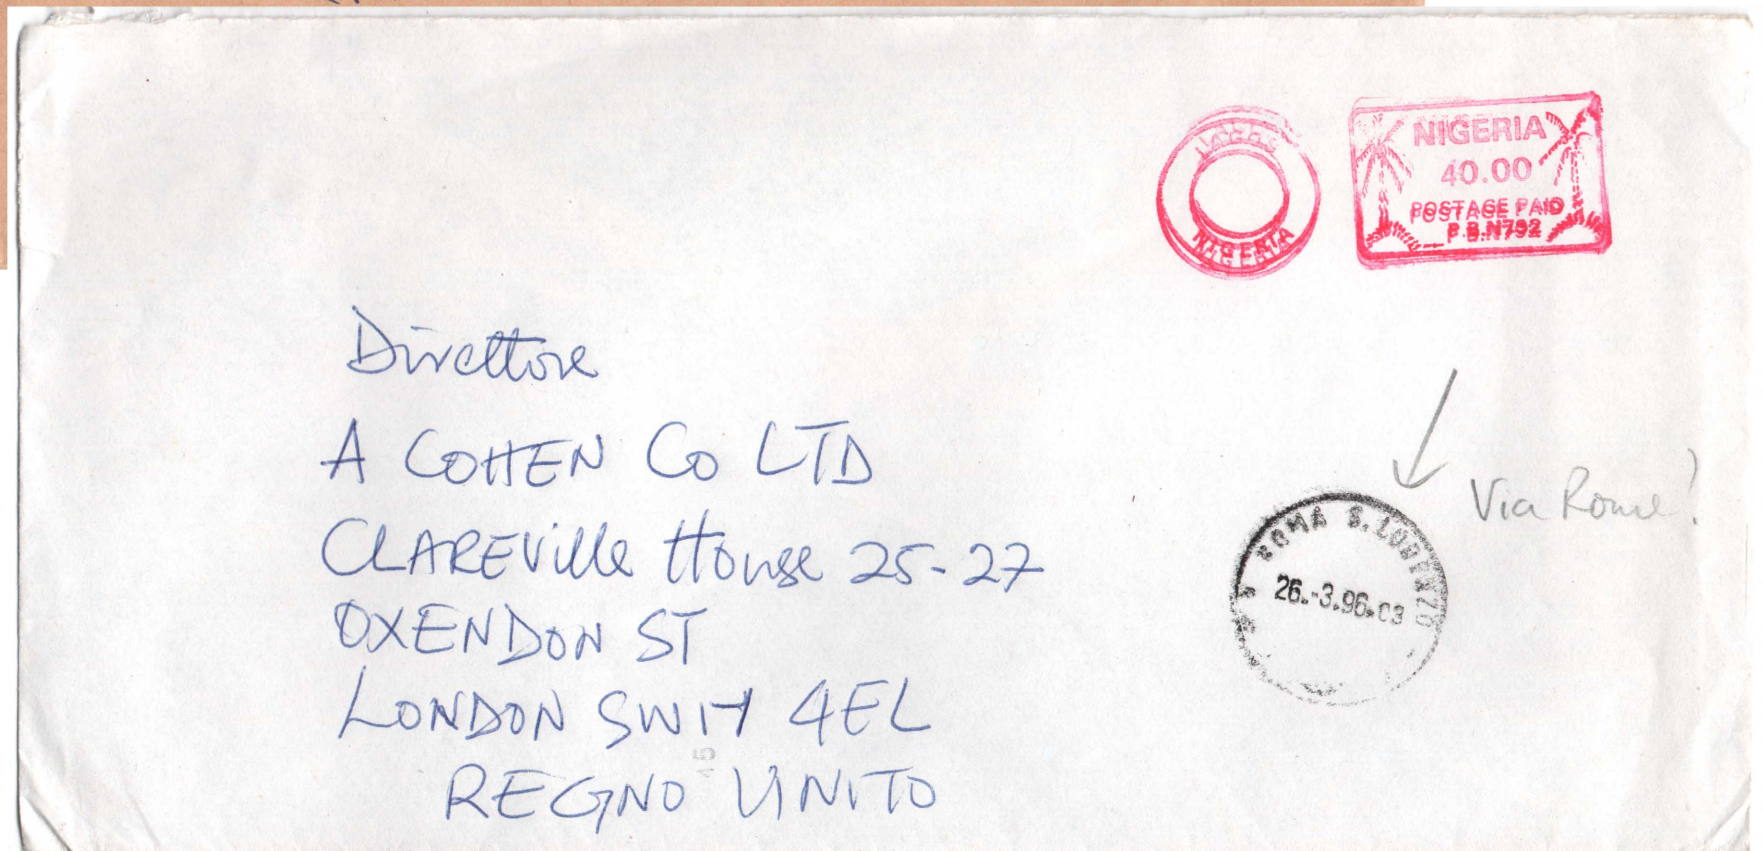 NIGERIA
NIGERIA
40.00
POSTAGE PAID
P.B.N792
Direttore
A COHEN Co LTD
CLAREVille House 25-27
OXENDON ST
LONDON SW1Y 4EL
REGNO UNITO
Via Rome!
ROMA
26.-3.96.03
15